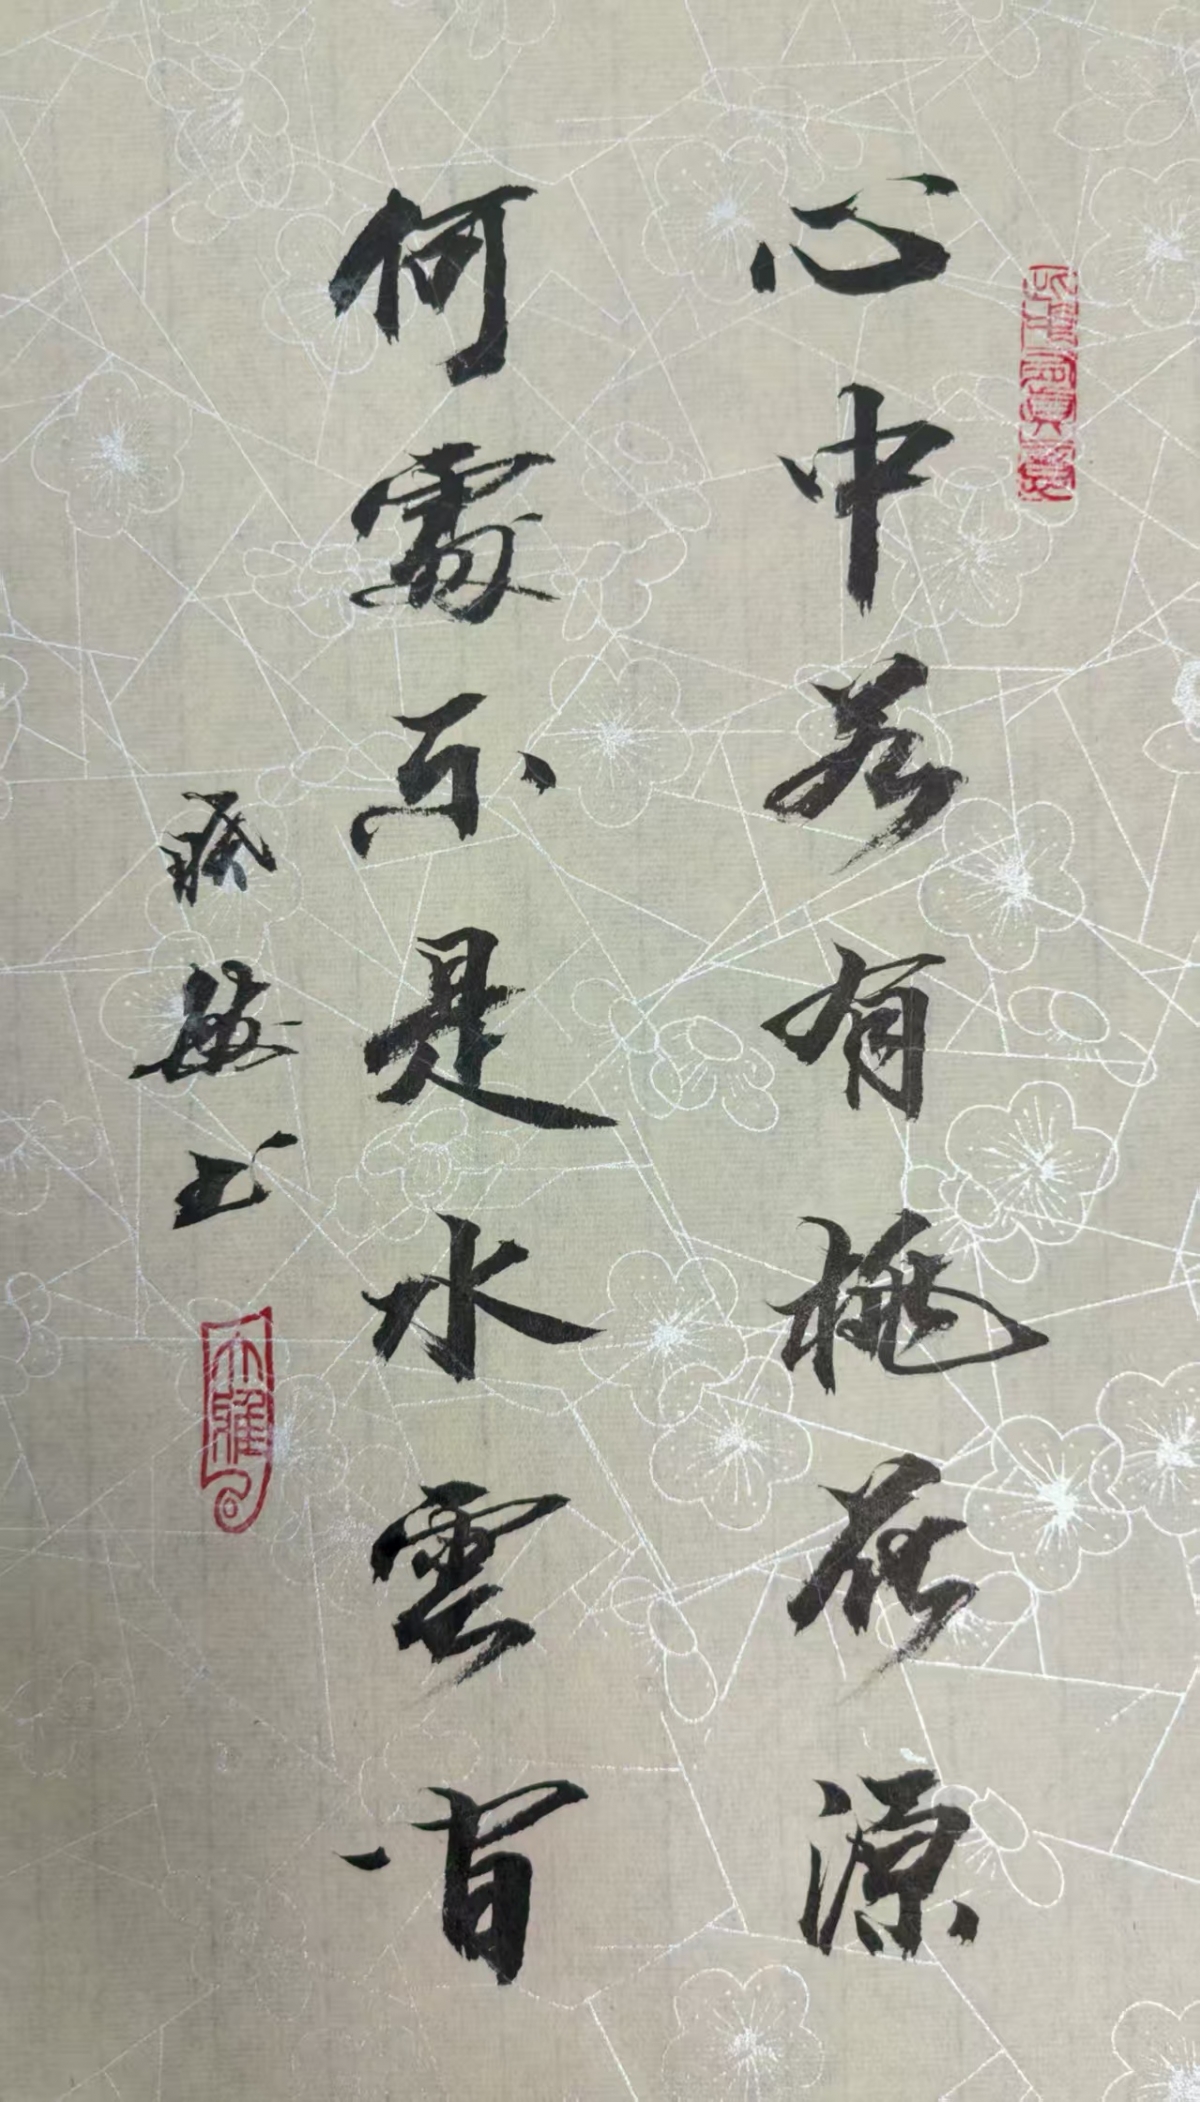 心中若有桃花源
何處不是水雲間
书
大雅